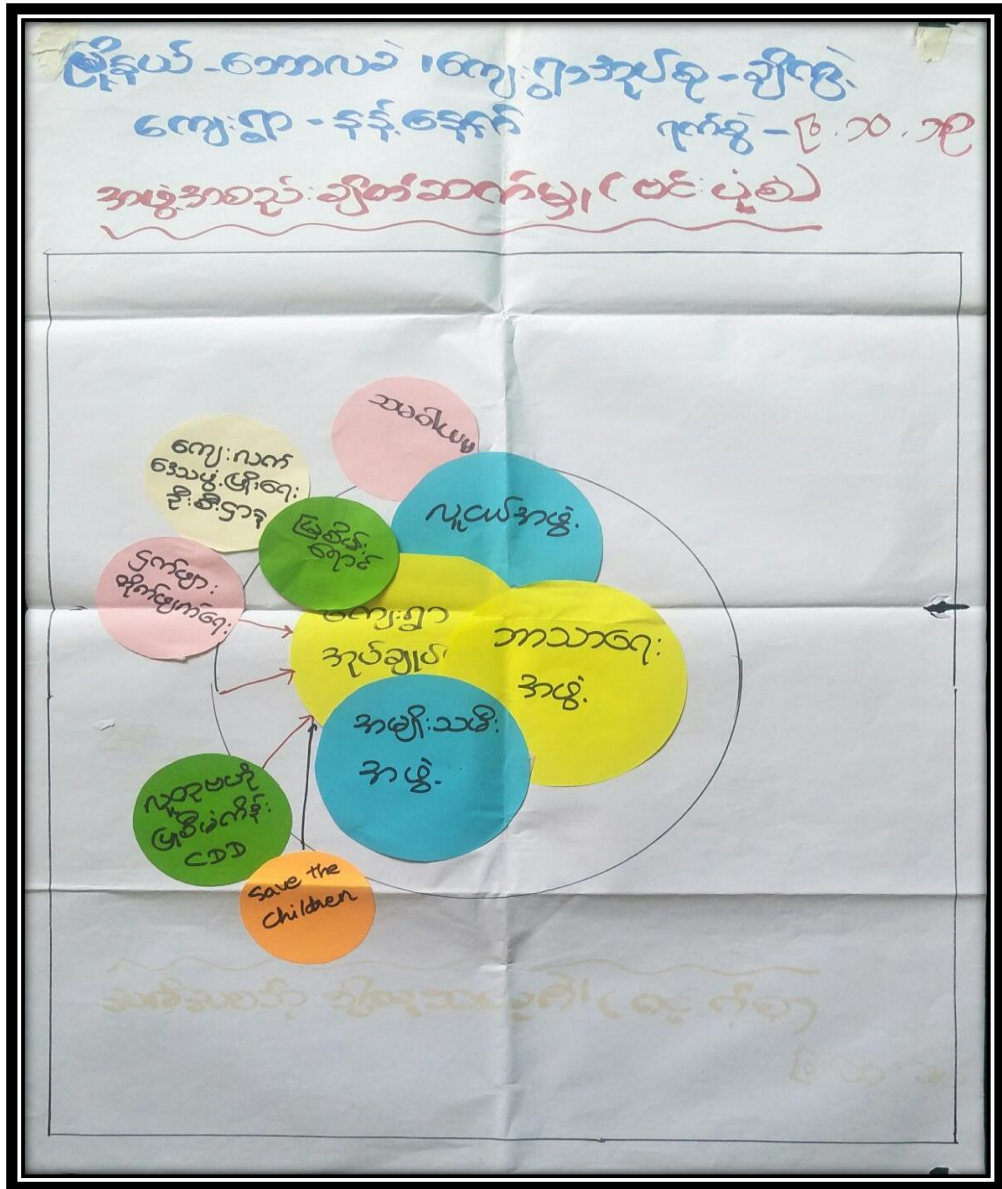 မြို့နယ် - ဘောလခဲ ၊ ကျေးရွာအုပ်စု - ချီကွဲ
ကျေးရွာ - နန့်နောက် ရက်စွဲ - ၉.၁၀.၁၉
အဖွဲ့အစည်းချိတ်ဆက်မှု ( ဗင်းပုံစံ )
သမဝါယမ
ကျေးလက်
ဒေသဖွံ့ဖြိုးရေး
ဦးစီးဌာန
မြစိမ်း
ရောင်
လူငယ်အဖွဲ့
ငှက်ဖျား
တိုက်ဖျက်ရေး
ကျေးရွာ
အုပ်ချုပ်
ဘာသာရေး
အဖွဲ့
အမျိုးသမီး
အဖွဲ့
လူထုဗဟိုပြု
စီမံကိန်း
CDD
Save the
Children